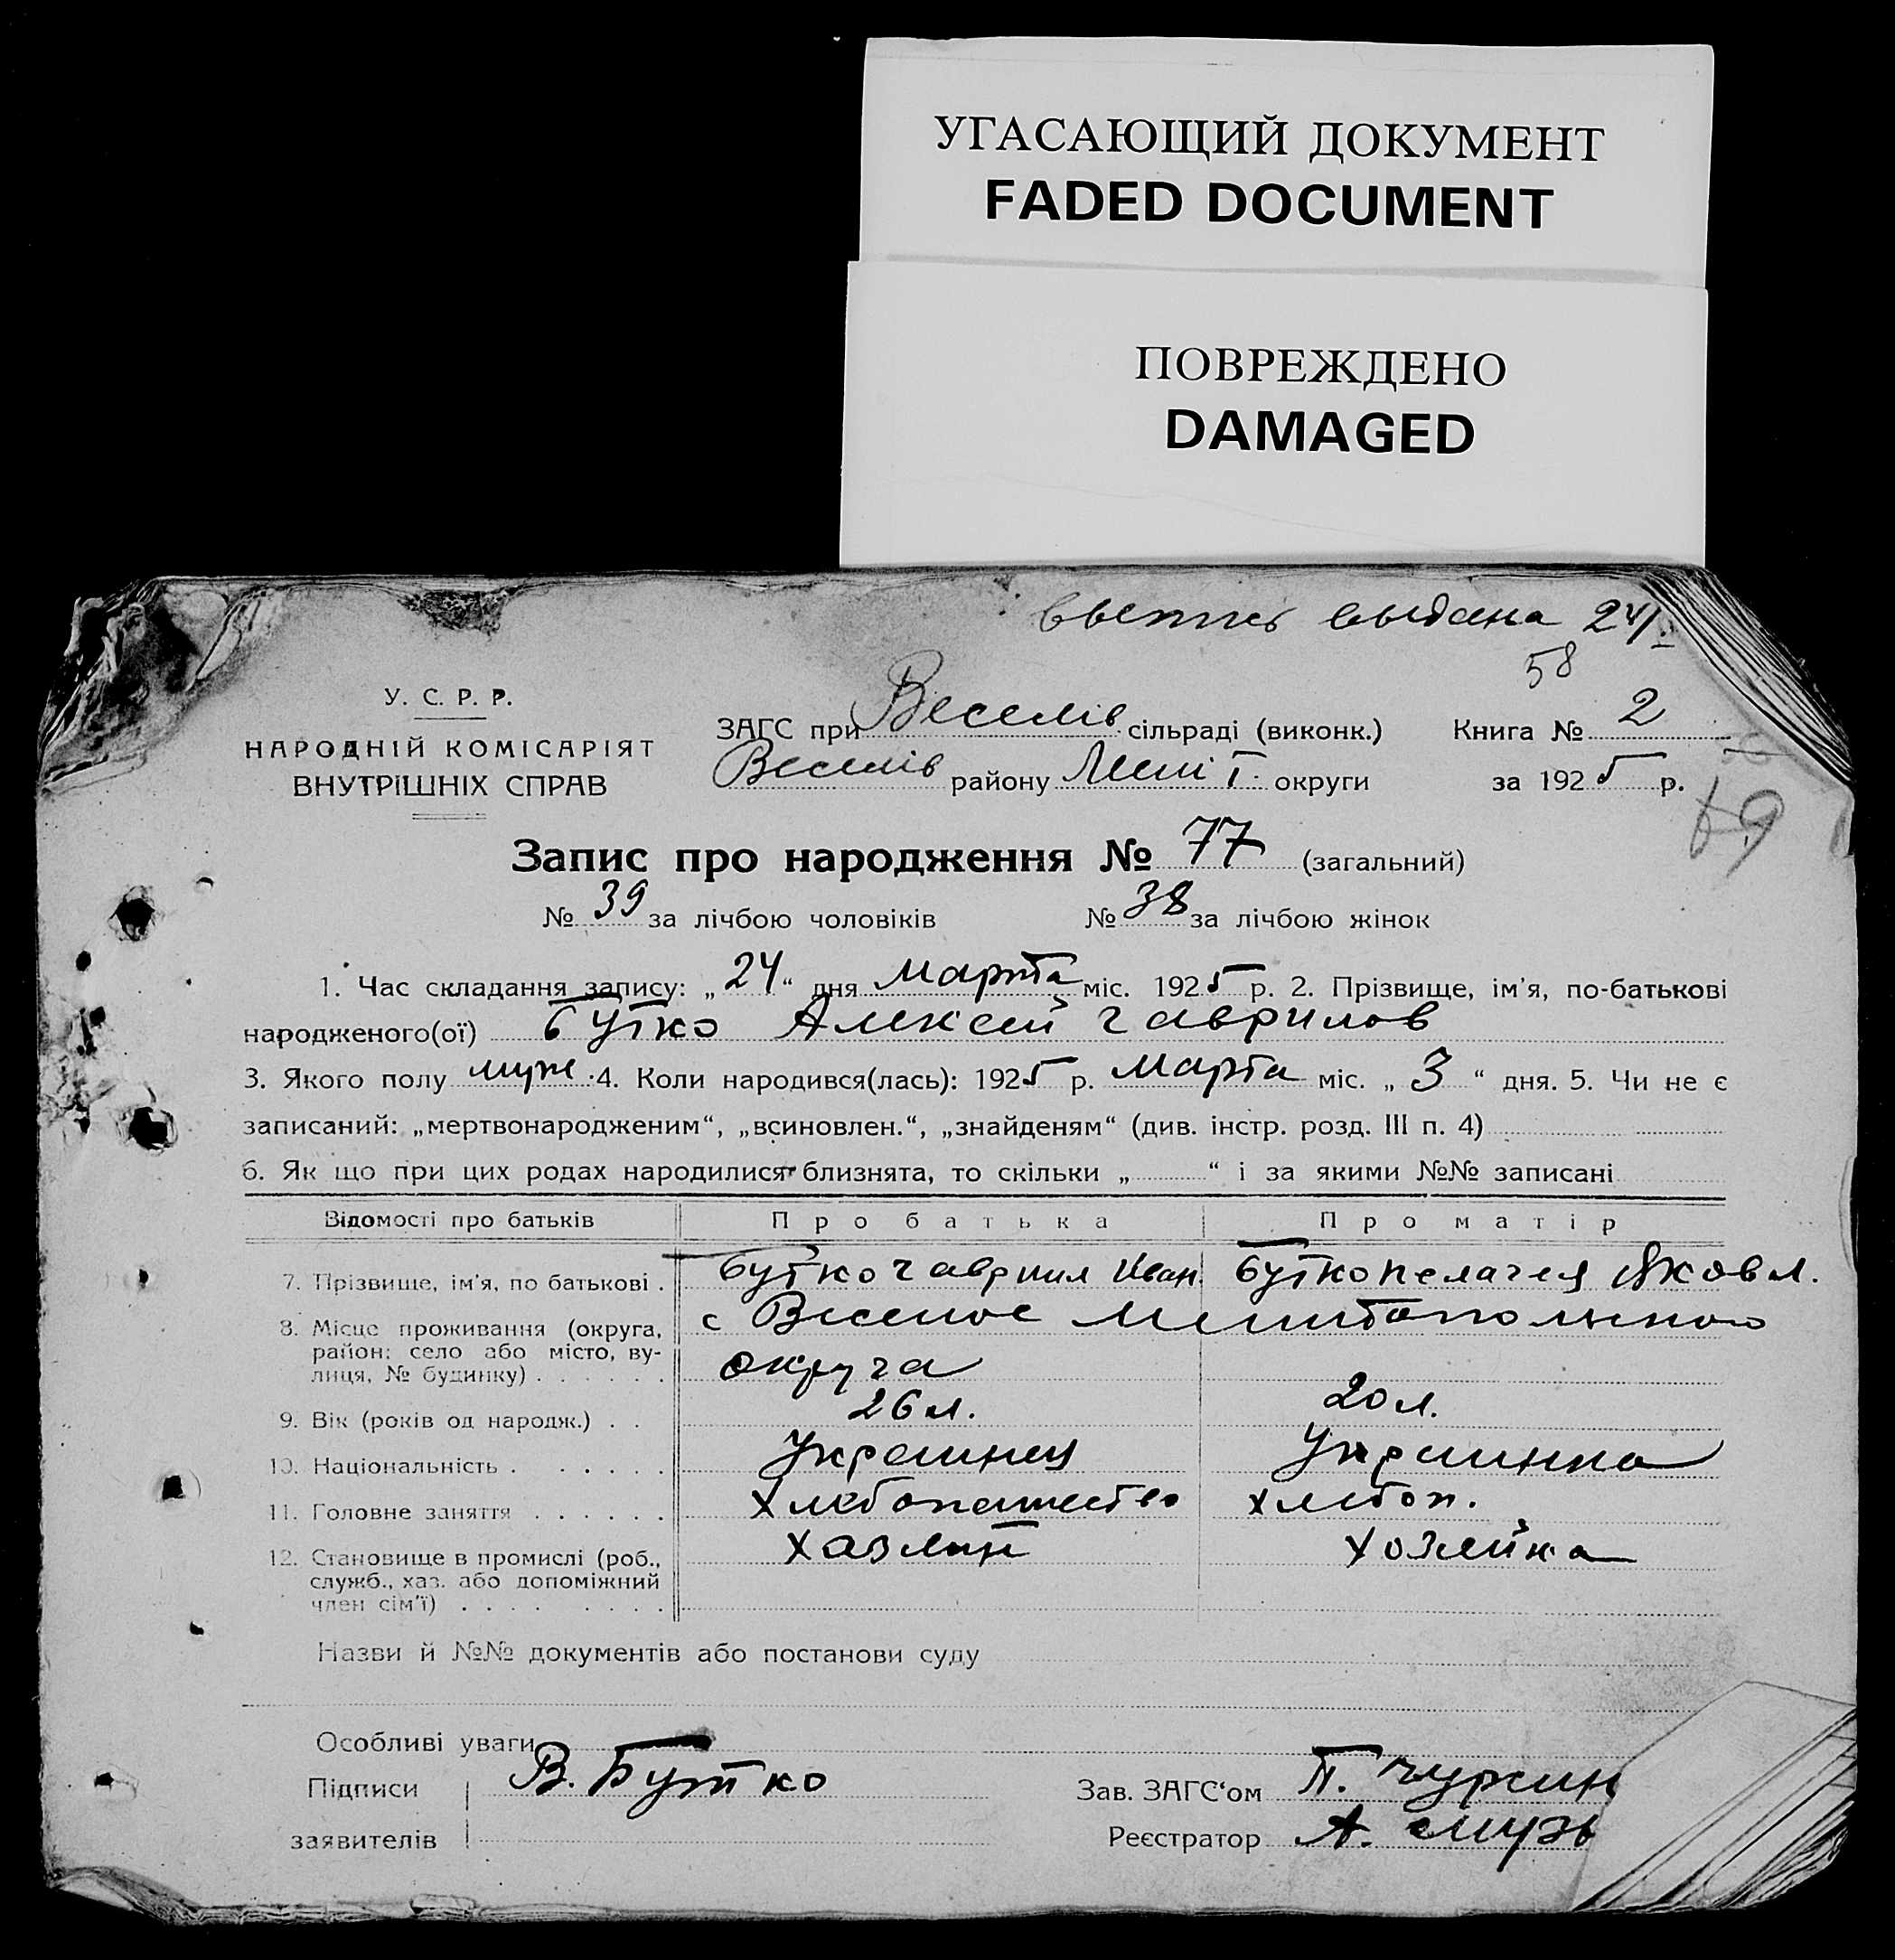 УГАСАЮЩИЙ ДОКУМЕНТ
FADED DOCUMENT
ПОВРЕЖДЕНО
DAMAGED
выдана 24/I
58
У. С. Р. Р.
НАРОДНІЙ КОМІСАРІЯТ
ВНУТРІШНІХ СПРАВ
ЗАГС при Веселів сільраді (виконк.) Книга № 2
Веселів району Меліт. округи за 1925 р.
69
Запис про народження № 77 (загальний)
№ 39 за лічбою чоловіків № 38 за лічбою жінок
1. Час складання запису: „24“ дня марта міс. 1925 р. 2. Прізвище, ім'я, по-батькові
народженого(ої) Бутко Алексей Гаврилов
3. Якого полу муж. 4. Коли народився(лась): 1925 р. Марта міс. „3“ дня. 5. Чи не є
записаний: „мертвонародженим“, „всиновлен.“, „знайденям“ (див. інстр. розд. III п. 4)
6. Як що при цих родах народилися близнята, то скільки „ “ і за якими №№ записані
Відомості про батьків Про батька Про матір
7. Прізвище, ім'я, по батькові . Бутко Гавриил Иван. Бутко Пелагея Яковл.
8. Місце проживання (округа, с Веселое Мелитопольского
район: село або місто, ву-
лиця, № будинку) . . . . . . округа
9. Вік (років од народж.) . . 26 л. 20 л.
10. Національність . . . . . . Украинец Украинка
11. Головне заняття . . . . . . Хлебопашество хлебоп.
12. Становище в промислі (роб., хазяин хозяйка
служб., хаз. або допоміжний
член сім'ї) . . . . . . . .
Назви й №№ документів або постанови суду
Особливі уваги
Підписи В. Бутко Зав. ЗАГС'ом П. Чурсин
заявителів Реєстратор А.